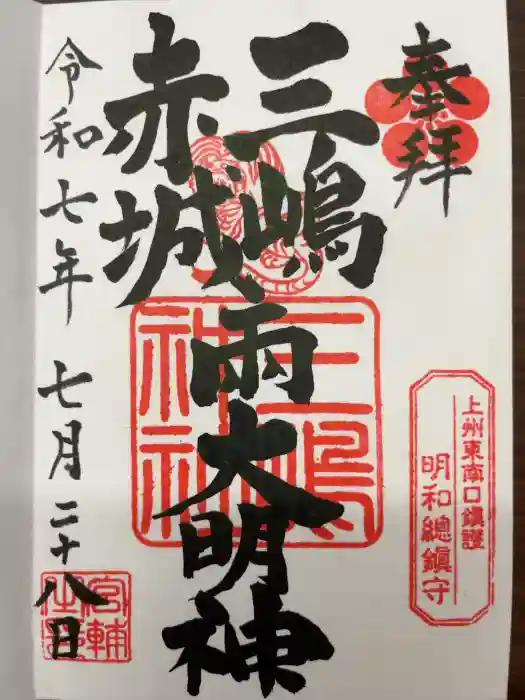 奉拝
三嶋
赤城
両大明神
令和七年七月二十八日
三嶋
神社
上州東南口鎮護
明和總鎮守
宮輔